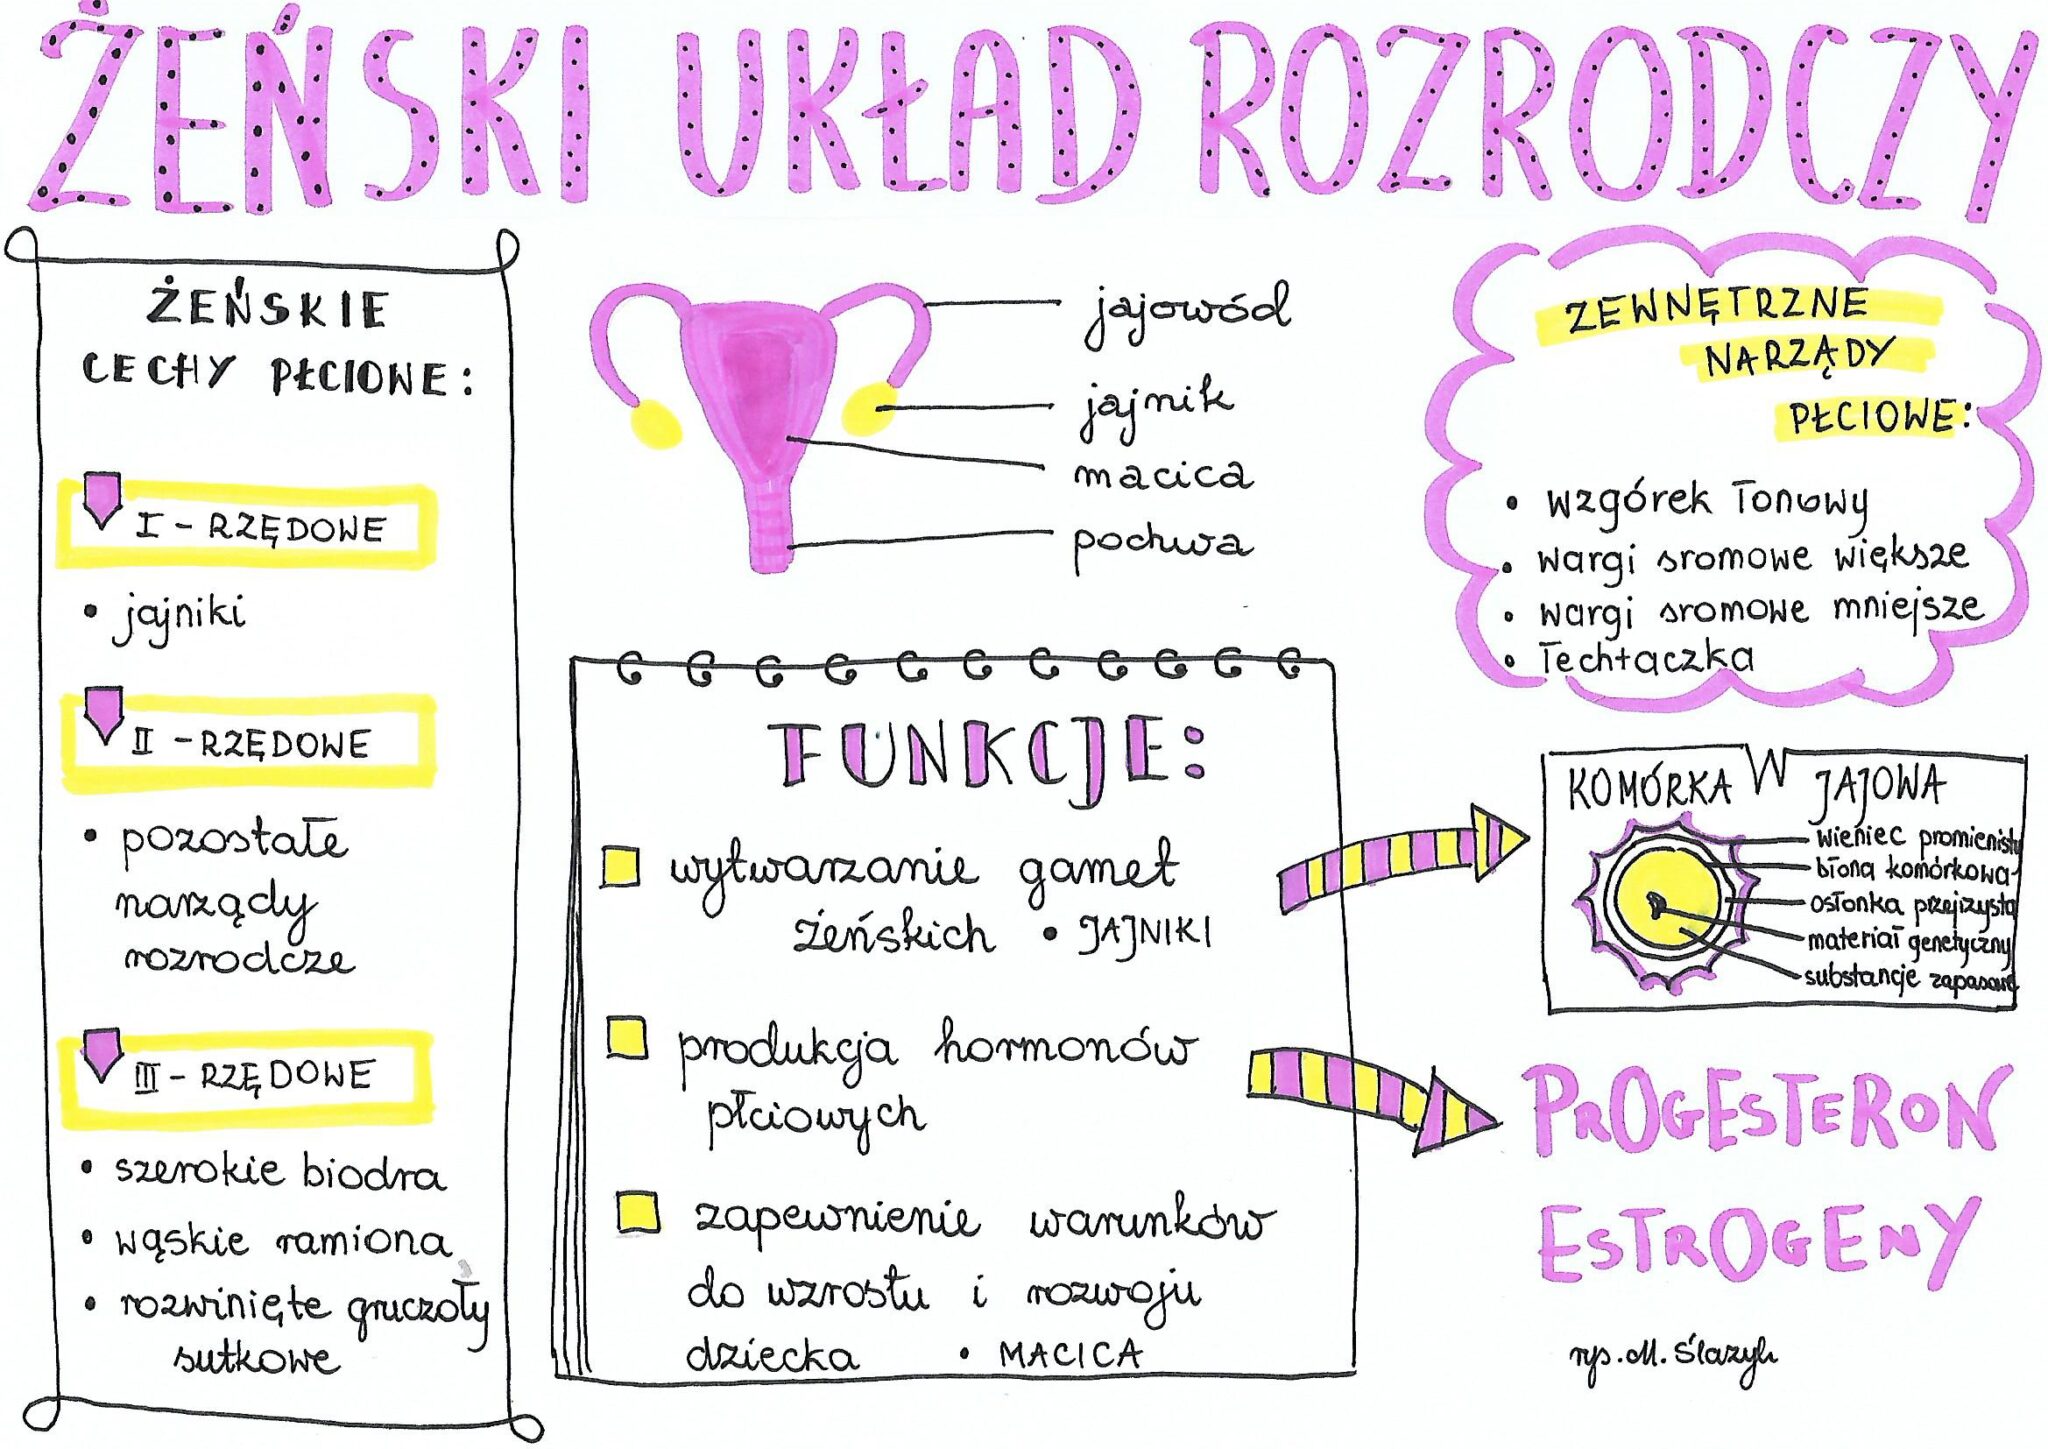 ŻEŃSKI UKŁAD ROZRODCZY
ŻEŃSKIE
CECHY PŁCIOWE:
I - RZĘDOWE
• jajniki
II - RZĘDOWE
• pozostałe
narządy
rozrodcze
III - RZĘDOWE
• szerokie biodra
• wąskie ramiona
• rozwinięte gruczoły
sutkowe
jajowód
jajnik
macica
pochwa
ZEWNĘTRZNE
NARZĄDY
PŁCIOWE:
• wzgórek łonowy
• wargi sromowe większe
• wargi sromowe mniejsze
• łechtaczka
FUNKCJE:
wytwarzanie gamet
żeńskich • JAJNIKI
produkcja hormonów
płciowych
zapewnienie warunków
do wzrostu i rozwoju
dziecka • MACICA
KOMÓRKA JAJOWA
wieniec promienisty
błona komórkowa
osłonka przejrzysta
materiał genetyczny
substancje zapasowe
PROGESTERON
ESTROGENY
rys. M. Ślazyk